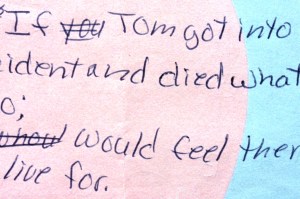 "If you Tom got into
ident and died what
o;
would feel ther
live for.